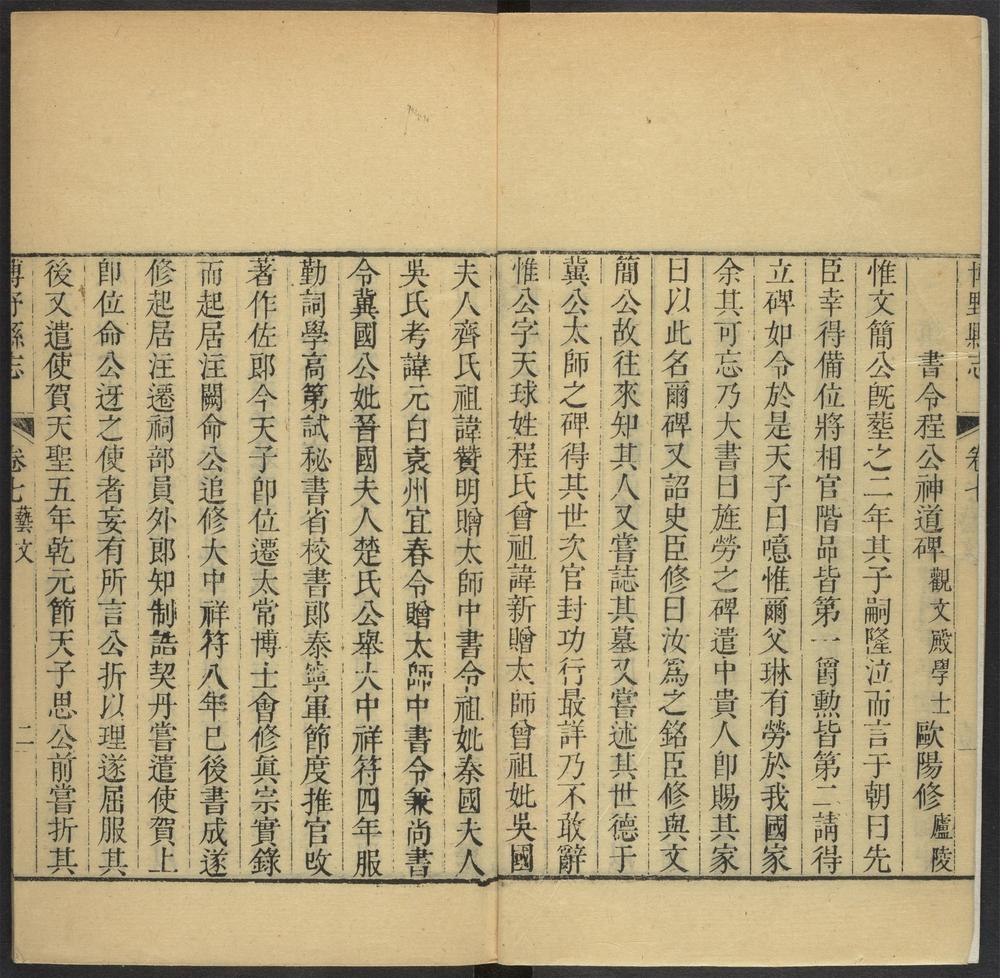 博野縣志
卷七
書令程公神道碑 觀文殿學士 歐陽修 廬陵
惟文簡公旣塟之二年其子嗣隆泣而言于朝曰先
臣幸得備位將相官階品皆第一爵勲皆第二請得
立碑如令於是天子曰噫惟爾父琳有勞於我國家
余其可忘乃大書曰旌勞之碑遣中貴人卽賜其家
曰以此名爾碑又詔史臣修曰汝爲之銘臣修與文
簡公故往來知其人又嘗誌其墓又嘗述其世德于
冀公太師之碑得其世次官封功行最詳乃不敢辭
惟公字天球姓程氏曾祖諱新贈太師曾祖妣吳國
夫人齊氏祖諱贊明贈太師中書令祖妣秦國夫人
吳氏考諱元白袁州宜春令贈太師中書令兼尚書
令冀國公妣晉國夫人楚氏公舉大中祥符四年服
勤詞學高第試秘書省校書郎泰寧軍節度推官改
著作佐郎今天子卽位遷太常博士會修眞宗實錄
而起居注闕命公追修大中祥符八年巳後書成遂
修起居注遷祠部員外郎知制誥契丹嘗遣使賀上
卽位命公迓之使者妄有所言公折以理遂屈服其
後又遣使賀天聖五年乾元節天子思公前嘗折其
博野縣志
卷七 藝文
二